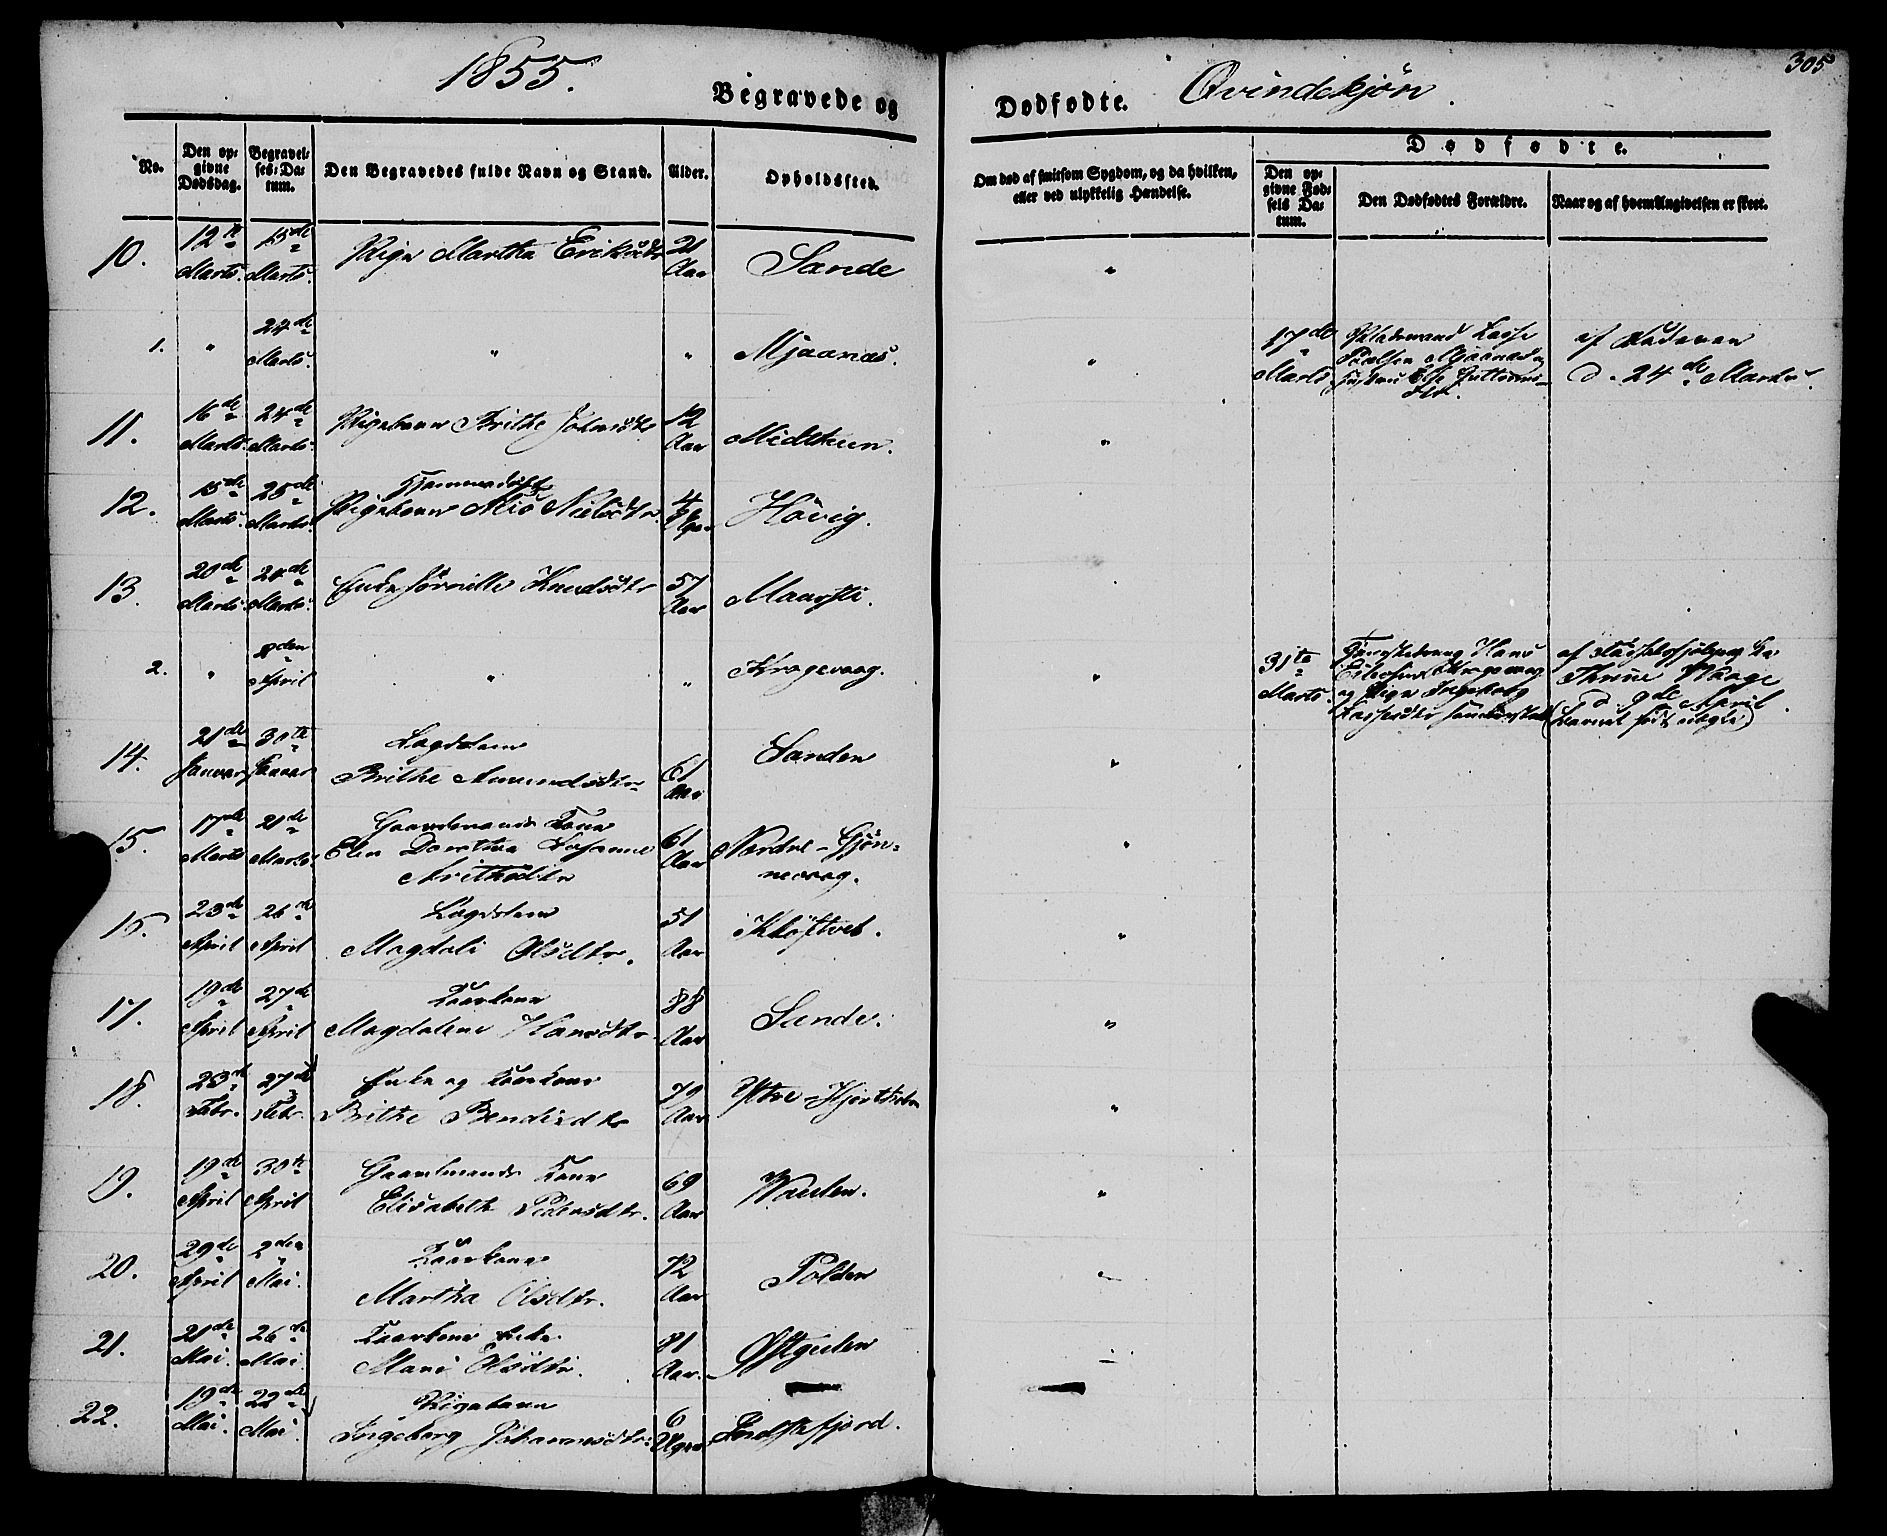 1855.
Begravede og
Dødfødte. Qvindekjøn.
305
No.
Den op-
givne
Dødsdag.
Begravel-
ses-Da-
tum.
Den Begravedes fulde Navn og Stand.
Alder.
Opholdssted.
Om død af smitsom Sygdom, og da hvilken,
eller ved ulykkelig Hændelse.
Dødfødte.
Den op-
givne Fød-
sels Da-
tum.
Den Dødfødtes Forældre.
Naar og af hvem Angivelsen er skeet.
10. 12te Marts. 15de Marts. Pige Martha Eriksdtr 21 Aar Sande "
1. " 24de Marts. " " Mjaanæs. " 17de Marts
Pladsmand Lasse
Mjaanæs og
Hustru Else Guttorms-
dtr.
af Faderen
d. 24de Marts.
11. 16de Marts. 24de Marts. Pigebarn Brithe Johnsdtr 12 Aar Midtuun. "
12. 15de Marts. 25de Marts.
Hjemmedøbt
Pigebarn Nielsdtr. 4 Uger Høvig.
13. 20de Marts. 24de Marts. Enke Knudsdtr 57 Aar
2. " April " " Kragevaag. " 31te Marts.
Hans
Kragevaag
og Pige Ingeborg
af
Waage
d. 9de April.
(Barnet født
14. 21de Januar 30te Januar
Lægdslem
Brithe Amundsdtr. 61 Aar Sanden "
15. 17de Marts 21de Marts.
Gaardmands Kone
Elen Dorothea Susanne 61 Aar Nordre-Gjøn-
nevaag. "
16. 23de April 26de April
Lægdslem
Magdali Olsdtr. 51 Aar Kløftvet. "
17. 19de April 27de April
Kaarkone
Magdalene Hansdtr 88 Aar Sande. "
18. 23de Febr. 27de Febr.
Enke og Kaarkone
Brithe Bendixdtr 79 Aar Ytre-Hjartholm "
19. 19de April 30te April
Gaardmands Kone
Elisabeth Pedersdtr. 69 Aar Waulen. "
20. 29de April 2den Mai.
Kaarkone
Martha Olsdtr. 72 Aar Polden "
21. 21de Mai. 26de Mai
Kaarkone Enke
Mari Olsdtr. 81 Aar. Østgulen "
22. 19de Mai. 22de Mai
Pigebarn
Ingeborg Johannesdtr. 6 Uger Indstefjord.